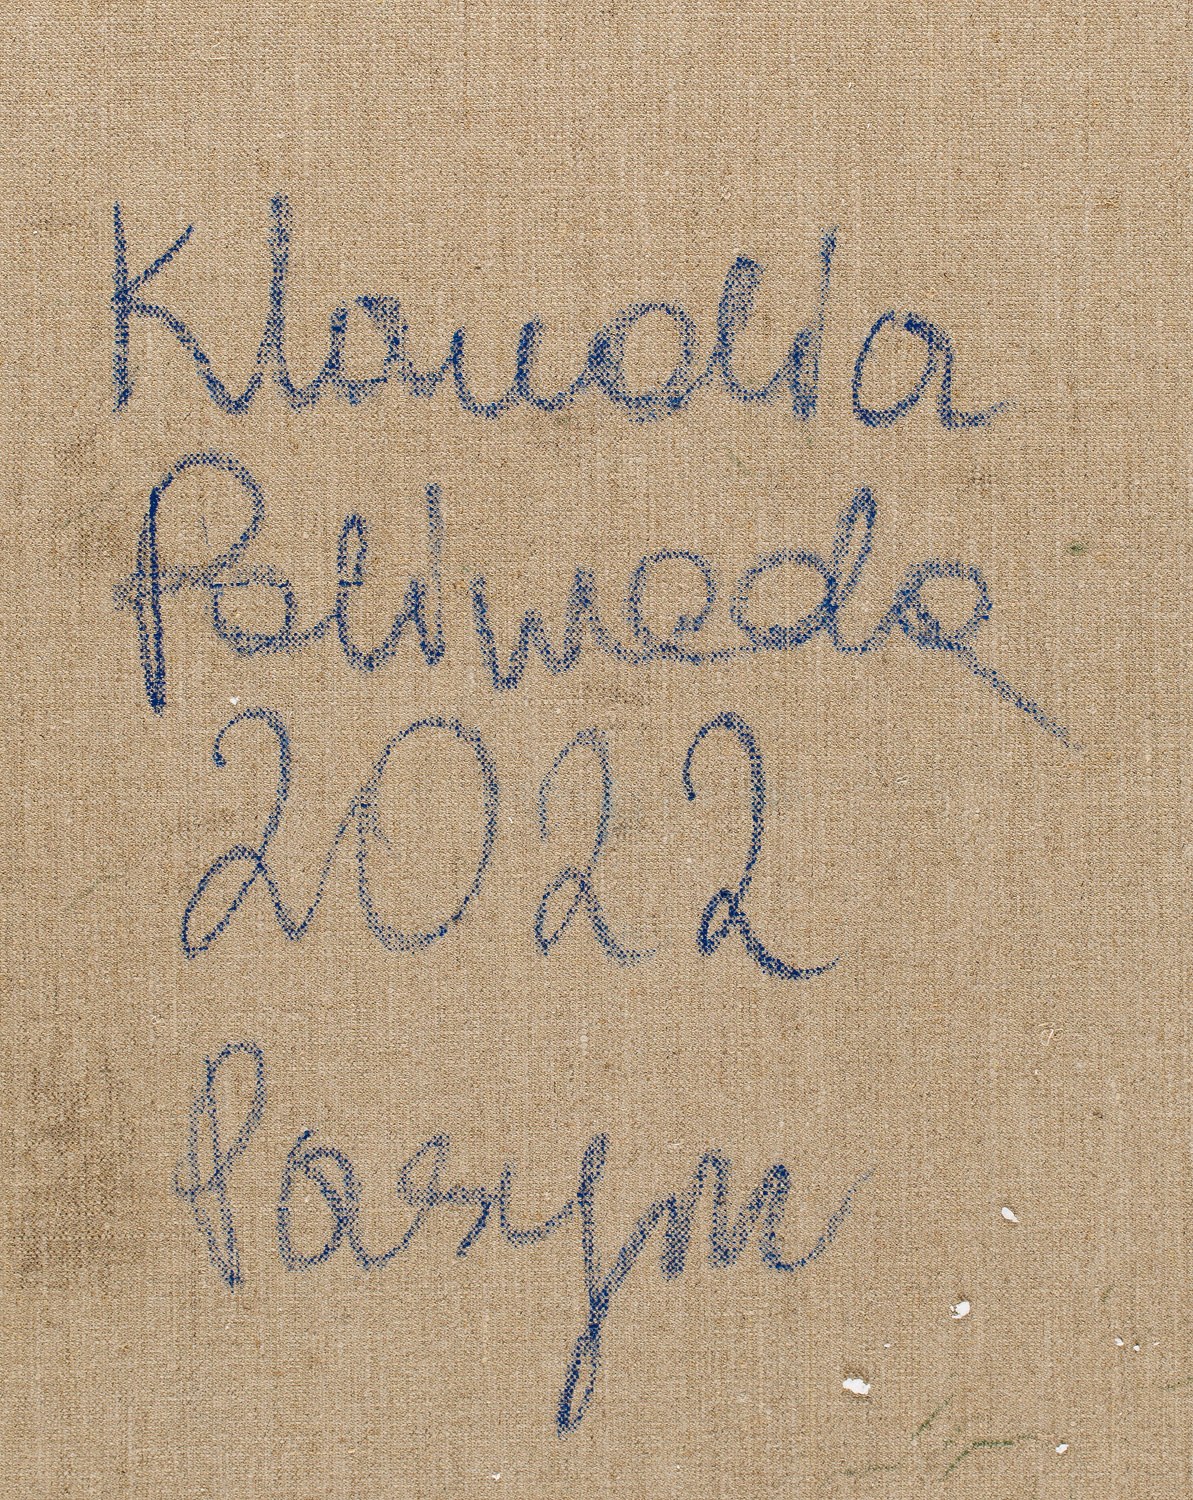 Klaudia
Poliwoda
2022
Pasym